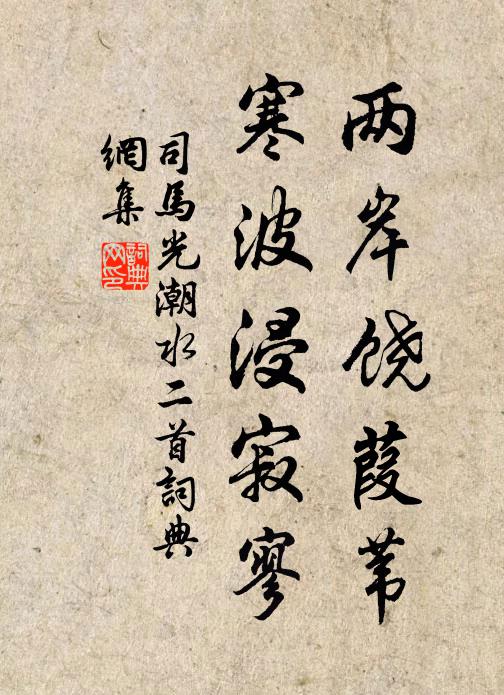 两岸饶葭苇
寒波浸寂寥
司馬光潮水二首詞典
網集
詞典网印